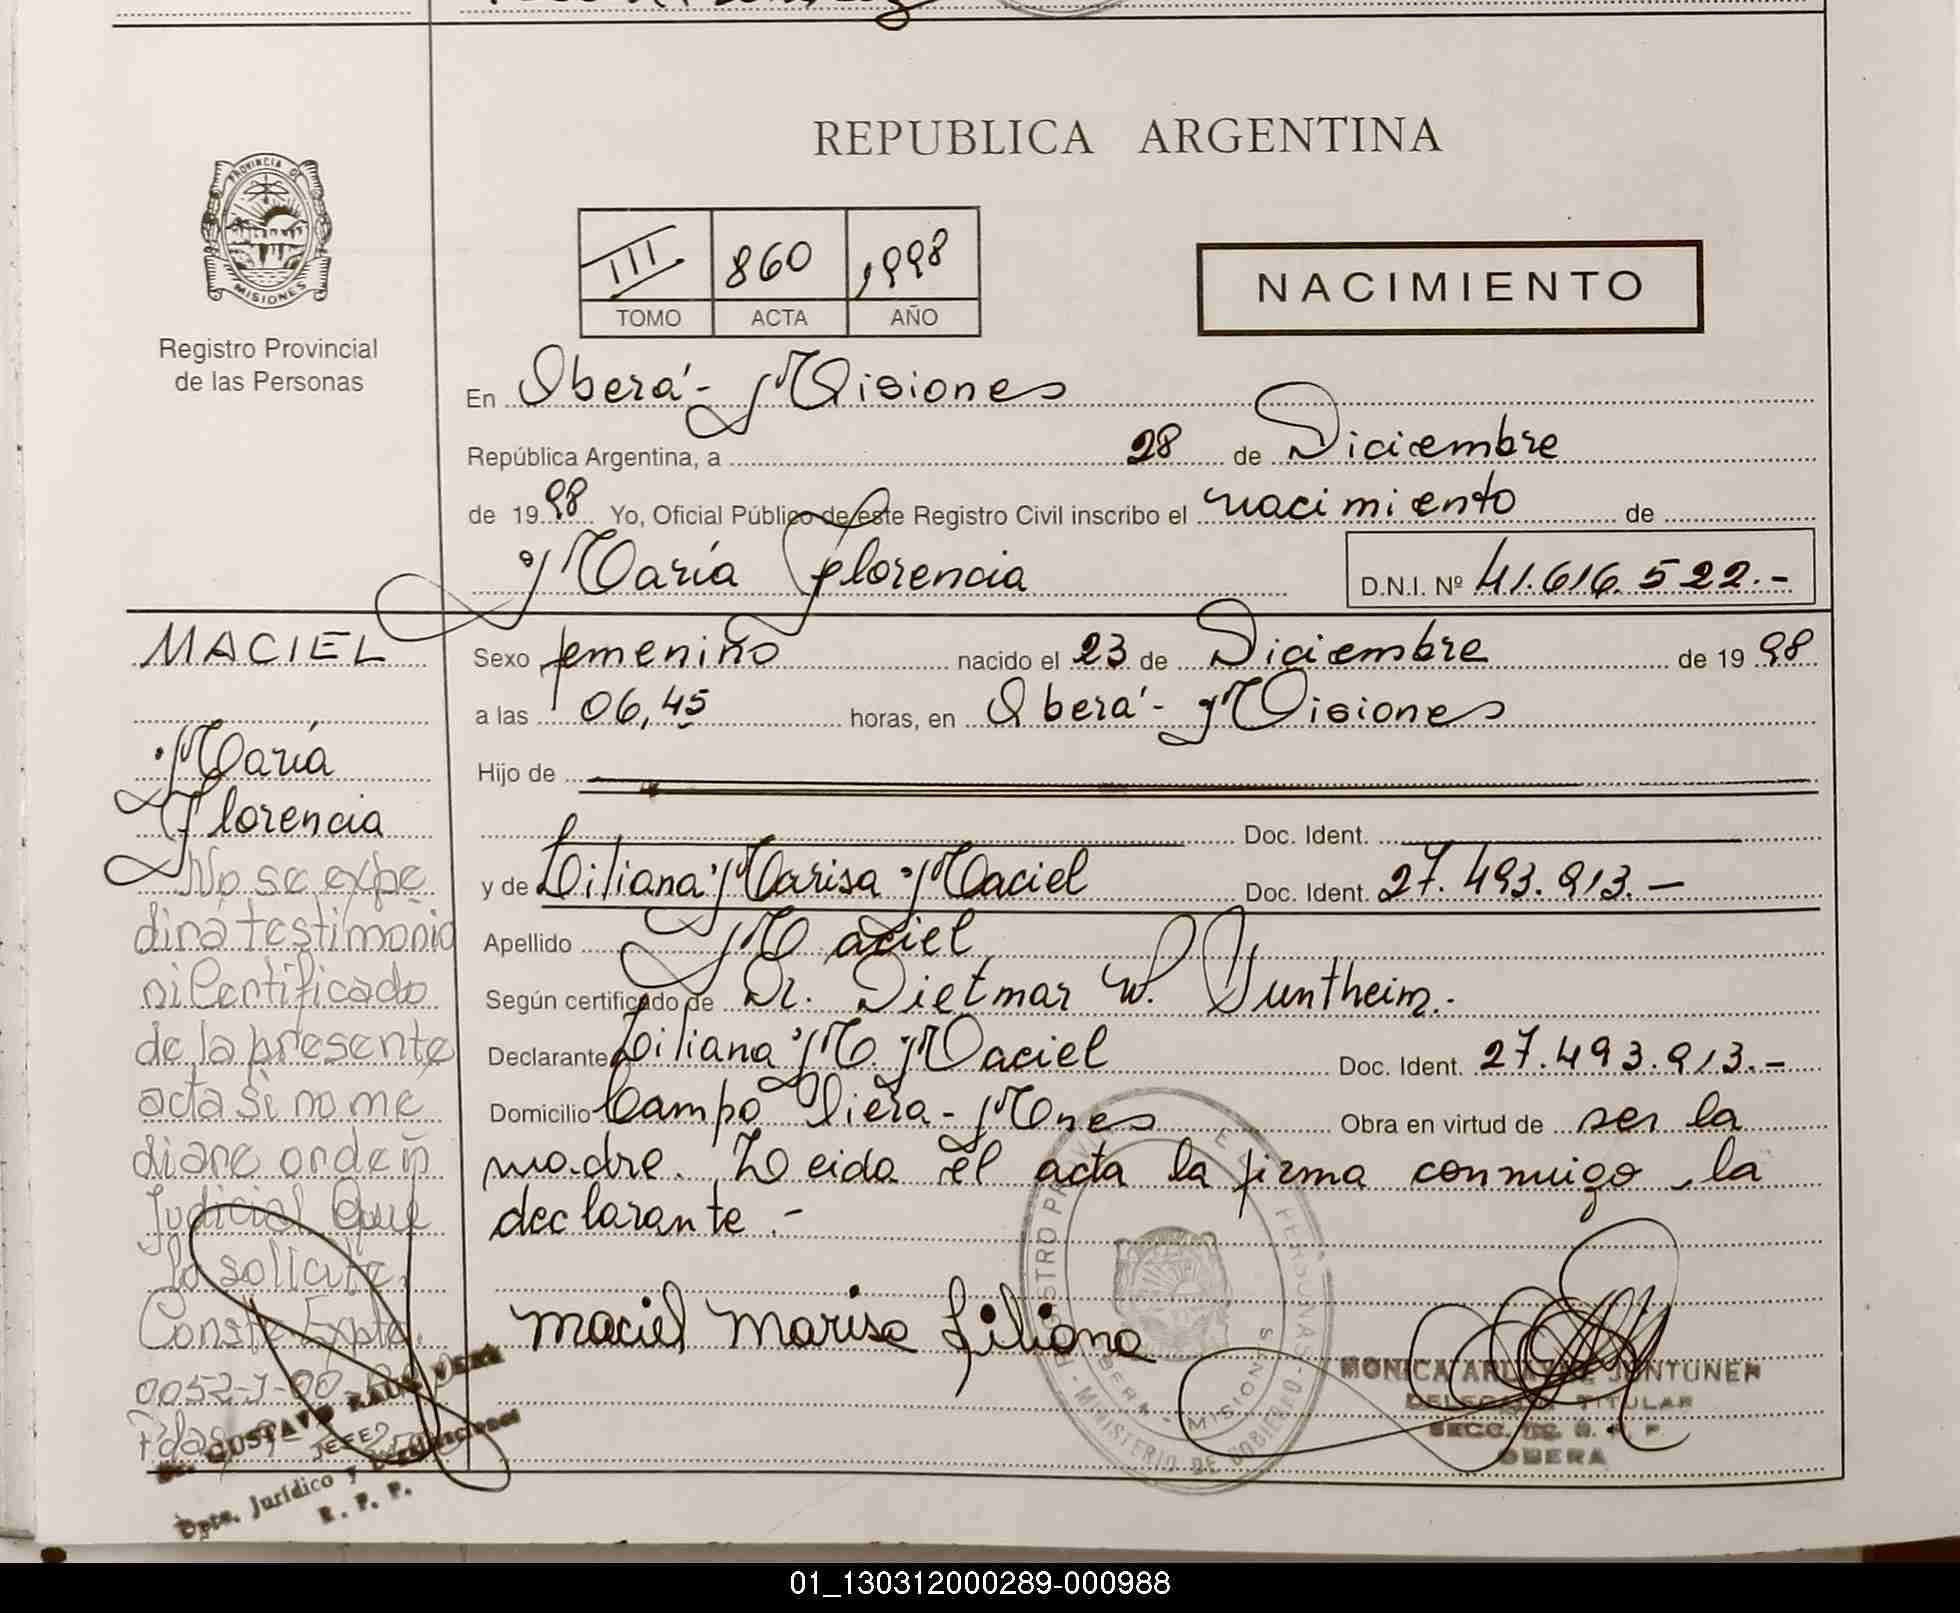 REPUBLICA ARGENTINA
PROVINCIA DE
MISIONES
Registro Provincial
de las Personas
III 860 1998
TOMO ACTA AÑO
NACIMIENTO
En Oberá - Misiones
República Argentina, a 28 de Diciembre
de 1998 Yo, Oficial Público de este Registro Civil inscribo el nacimiento de
María Florencia D.N.I. Nº 41.616.522.-
MACIEL
María
Florencia
No se expe
dirá testimonio
ni Certificado
de la presente
acta si no me
diare orden
Judicial Que
lo solicite.
Conste Expte.
Dr. GUSTAVO RAUL VERA
JEFE
Dpto. Jurídico y
R. P. P.
Sexo femenino nacido el 23 de Diciembre de 1998
a las 06,45 horas, en Oberá - Misiones
Hijo de
Doc. Ident.
y de Liliana Marisa Maciel Doc. Ident. 27.493.913.-
Apellido Maciel
Según certificado de Dr. Dietmar W. Guntheim.
Declarante Liliana M. Maciel Doc. Ident. 27.493.913.-
Domicilio Campo Viera - Mnes Obra en virtud de ser la
madre. Leida el acta la firma conmigo, la
declarante.-
Maciel Marisa Liliana
REGISTRO PROVINCIAL DE LAS PERSONAS
MINISTERIO DE GOBIERNO
OBERA - MISIONES
MONICA JUNTUNEN
DELEGADA TITULAR
SECC. DE R. P. P.
OBERA
01_130312000289-000988